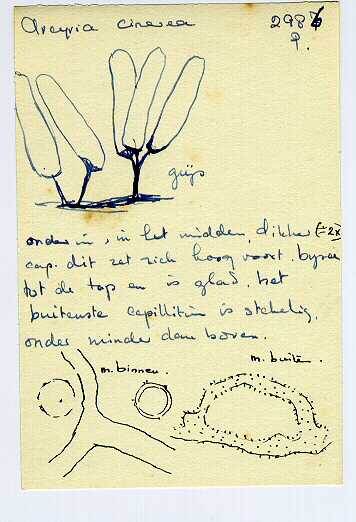 Arcyria cinerea 2986
P.
grijs
onder in, in het midden, dikker (= 2x)
cap. dit zet zich hoog voort, byna
tot de top en is glad, het
buitenste capillitium is stekelig,
onder minder dan boven.
m. binnen.
m. buiten.